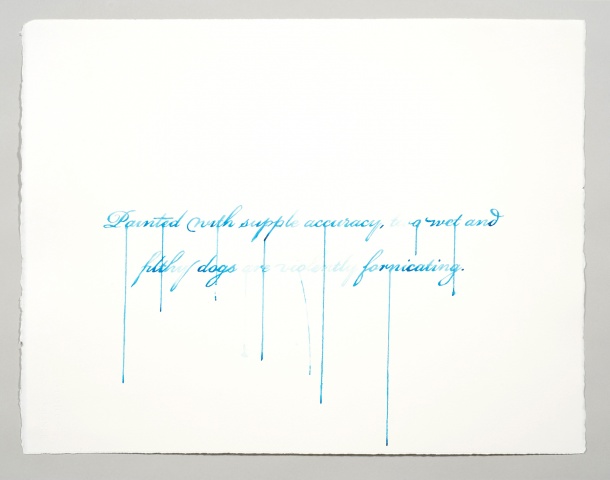 Painted with supple accuracy, two wet and
filthy dogs are violently fornicating.